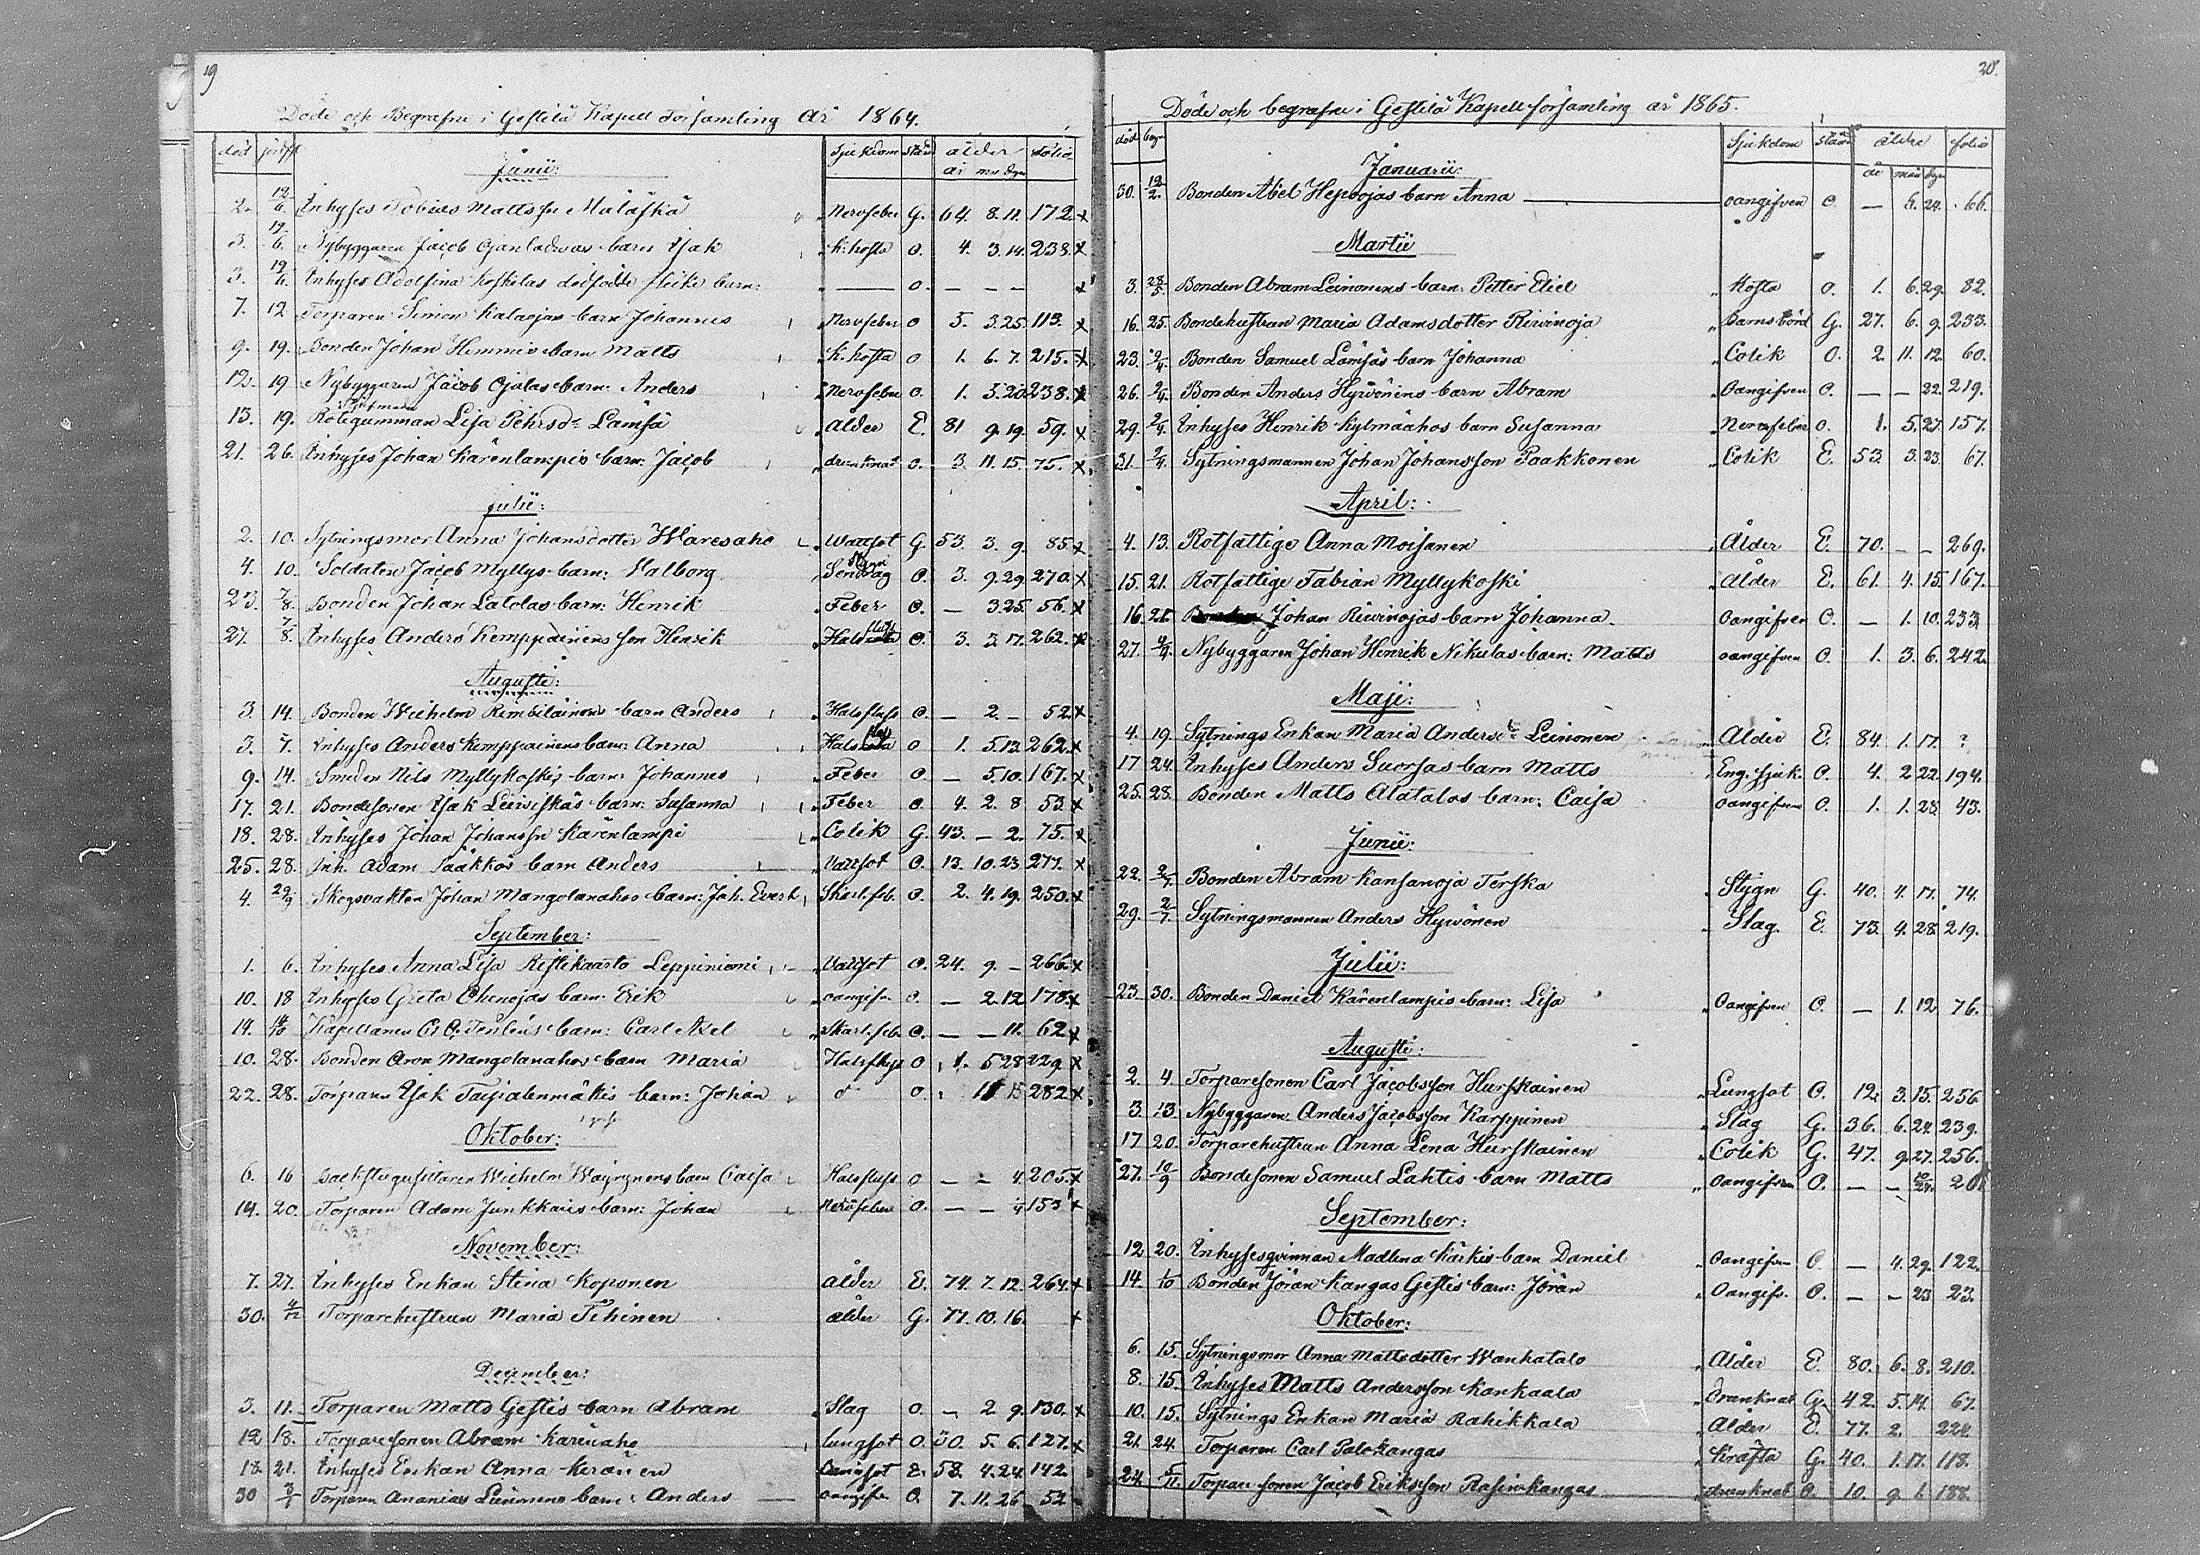 19
Döde och Begrafne i Gestilä Kapell Församling år 1864.
död jordf. Sjukdom stånd ålder folio
år mn dgr
Junii:
2. 12/6. Inhyses Tobias Mattsson Maläska Nervfeber G. 64. 8. 11. 172. x
3. 19/6. Nybyggaren Jacob barn Isak k:hosta o. 4. 3. 14. 238. x
3. 19/6. Inhyses Adolfina Koskelas dödfödde barn: — o. — — — x
7. 12 Torparen Simon Kalaojas barn Johannes Nervfeber o 5. 3. 25. 113. x
9. 19. Bonden Johan Hemmis barn Matts k:hosta o 1. 6. 7. 215. x
12. 19 Nybyggaren Jacob Ojalas barn: Anders Nervfeber o. 1. 3. 20 238. x
13. 19. Rotegumman Lisa Pehrsdr Lämsä ålder E. 81 9. 19. 59. x
21. 26. Inhyses Johan Kärenlampis barn: Jacob o. 3. 11. 15. 75. x
Julii:
2. 10. Sytningsmor Anna Johansdotter Waresaho Wattsot G. 53. 3. 9. 85 x
4. 10. Soldaten Jacob Myllys barn: Walborg o. 3. 9. 29 270. x
23. 7/8. Bonden Johan Latolas barn: Henrik Feber o. — 3. 25. 56. x
27. 7/8. Inhyses Anders Kemppainens son Henrik Halsfluss o. 3. 3 17. 262. x
Augusti:
3. 14. Bonden Wilhelm barn Anders Halsfluss o. — 2. — 52. x
3. 7. Inhyses Anders Kemppainens barn: Anna o 1. 5. 13. 262. x
9. 14. Smeden Nils Myllykoskis barn: Johannes Feber o. — 5. 10. 167. x
17. 21. Bondesonen Isak Leiwiskäs barn: Susanna Feber o. 4. 2. 8 53. x
18. 28. Inhyses Johan Johansson Kärenlampi Colik G. 43. — 2. 75. x
25. 28. Inh. Adam Pääkkös barn Anders Wattsot o. 13. 10. 23 277. x
4. Skogsvakten Johan Mangolanahos barn: Joh. Evert Skarl.feb. o. 2. 4. 19. 250. x
September:
1. 6. Inhyses Anna Lisa Ristikaarto Leppiniemi Wattsot o. 24. 9. — 266. x
10. 18 Inhyses Greta barn: Erik oangifn o. — 2. 12 178 x
14. Kapellanen barn: Carl Axel Skarl.feb. o. — — 11. 62. x
10. 28. Bonden Aron Mangolanahos barn Maria Halsfluss o 1. 5 28 229. x
22. 28. Torparen Isak Taipalenmäkis barn: Johan o. 282 x
Oktober:
6. 16 Backstugusittaren Wilhelm Wäyrynens barn Caisa Halsfluss o — — 4. 205. x
14. 20. Torparen Adam Junkkaris barn: Johan Nervfeber o. — — 153 x
November:
7. 27. Inhyses Enkan Stina Koponen ålder E. 74. 7. 12. 264. x
30. 4/12 Torparehustrun Maria Tihinen ålder G. 77. 10. 16. x
December:
3. 11. Torparen Matts Gestis barn Abram Slag o. — 2. 9. 130. x
12 18. Torparesonen Abram Kärenaho lungsot o. 30. 5. 6. 127. x
18. 21. Inhyses Enkan Anna Keränen E. 58. 4. 24. 142.
30 Torparen Ananias Leinonens barn: Anders oangifn o. 7. 11. 26 52
20.
Döde och begrafne i Gestilä Kapell församling år 1865.
död begr Sjukdom stånd ålder folio
år mån dgr
Januarii:
30. 12/2. Bonden Abel Hepoojas barn Anna oangifven o. — 6. 24. 66.
Martii
3. Bonden Abram Leinonens barn: Petter Eliel Hosta o. 1. 6. 29. 82.
16. 25. Bondehustrun Maria Adamsdotter Riwinoja Barnsbörd G. 27. 6. 9. 233.
23. 2/4. Bonden Samuel Lämsäs barn Johanna Colik o. 2. 11. 12. 60.
26. 2/4. Bonden Anders Hywönens barn Abram Oangifven o. — — 22. 219.
29. 2/4. Inhyses Henrik Kylmäahos barn Susanna Nervfeber o. 1. 5. 27. 157.
31. 2/4. Sytningsmannen Johan Johansson Paakkonen Colik E. 53. 3. 23. 67.
April:
4. 13. Rotfattige Anna Moisanen Ålder E. 70. — — 269.
15. 21. Rotfattige Fabian Myllykoski Ålder E. 61. 4. 15. 167.
16. 21. Johan Riwinojas barn Johanna oangifven o. — 1. 10. 233
27. Nybyggaren Johan Henrik Nikulas barn: Matts oangifven o. 1. 3. 6. 242.
Maji:
4. 19. Sytnings Enkan Maria Andersdr Leinonen Ålder E. 84. 1. 17. ?
17 24. Inhyses Anders Suorsas barn Matts Eng. sjuk. o. 4. 2 22. 194.
25. 28. Bonden Matts Alatalos barn: Caisa oangifven o. 1. 1. 28. 43.
Junii:
22. 2/7. Bonden Abram Kansanoja Terska Stygn G. 40. 4. 17. 74.
29. 2/7. Sytningsmannen Anders Hywönen Slag. E. 73. 4. 28. 219.
Julii:
23. 30. Bonden Daniel Kärenlampis barn: Lisa Oangifven o. — 1. 12 76.
Augusti:
2. 4. Torparesonen Carl Jacobsson Hurskainen Lungsot o. 12. 3. 15. 256
3. 13. Nybyggaren Anders Jacobsson Karppinen Slag G. 36. 6. 24. 239.
17 20. Torparehustrun Anna Lena Hurskainen Colik G. 47. 9. 27. 256.
27. 10/9 Bondesonen Samuel Lahtis barn Matts oangifven o. — —
September:
12 20. Inhysesqvinnan Madlena Kärkis barn Daniel Oangifven o. — 4. 29. 122.
14. 1/10 Bonden Jöran Kangas Gestis barn: Jöran Oangifv. o. — — 23 23.
Oktober:
6. 15. Sytningsmor Anna Mattsdotter Wanhatalo Ålder E. 80. 6. 8. 210.
8. 15. Inhyses Matts Andersson Kankaala Dranknat G. 42. 5. 14. 67.
10. 15. Sytnings Enkan Maria Rahikkala Ålder E. 77. 2. 224.
21. 24. Torparen Carl Palokangas Kräfta G. 40. 1. 17. 118.
24. 5/11. Torparesonen Jacob Eriksson Rasinkangas dranknat o. 10. 9. 1. 188.